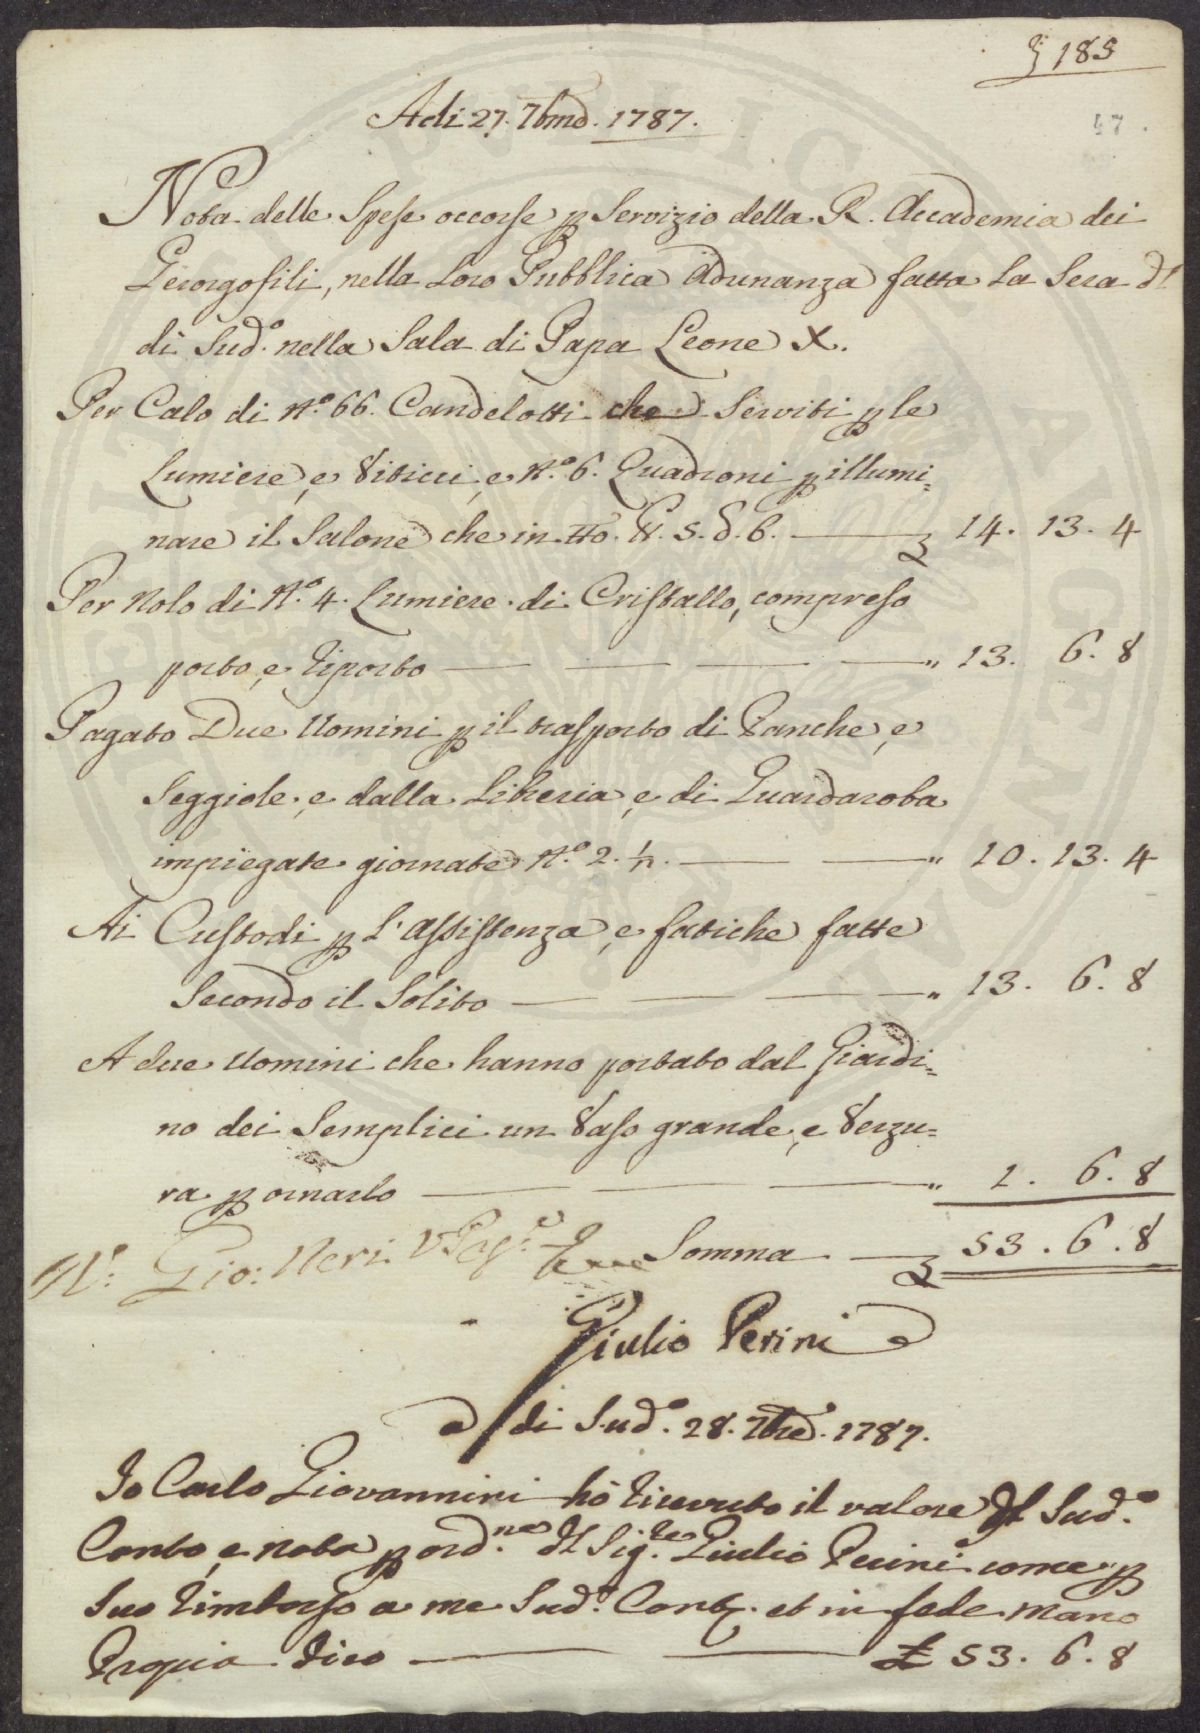 185
47.
Adi 27. 7bre. 1787.
Nota delle Spese occorse p Servizio della R. Accademia dei
Georgofili, nella loro Pubblica Adunanza fatta La Sera dl
dì Sud.º nella Sala di Papa Leone X.
Per Calo di N.º 66. Candelotti che Serviti p le
Lumiere, e Viticci, e N.º 6. Quadroni p illumi=
nare il Salone che in tto. 5. 6. — 14. 13. 4
Per Nolo di N.º 4. Lumiere di Cristallo, compreso
porto, e riporto — — — — " 13. 6. 8
Pagato Due Uomini p il trasporto di Panche, e
Seggiole, e dalla Libreria, e di Guardaroba
impiegate giornate N.º 2. ½. — — " 10. 13. 4
Ai Custodi p L'assistenza, e fatiche fatte
Secondo il Solito — — — — " 13. 6. 8
A due Uomini che hanno portato dal Giardi=
no dei Semplici un Vaso grande, e Verzu=
ra p ornarlo — — — " 1. 6. 8
Gio: Neri Somma — 53. 6. 8
Giulio Perini
a di Sud.º 28. 7bre. 1787.
Io Carlo Giovannini hò ricevuto il valore dl Sud.º
Conto, e nota p ord.ne dl Sig.re Giulio Perini come p
Suo rimborso a me Sud.º Cont. et in fede mano
Propria dico — — £ 53. 6. 8